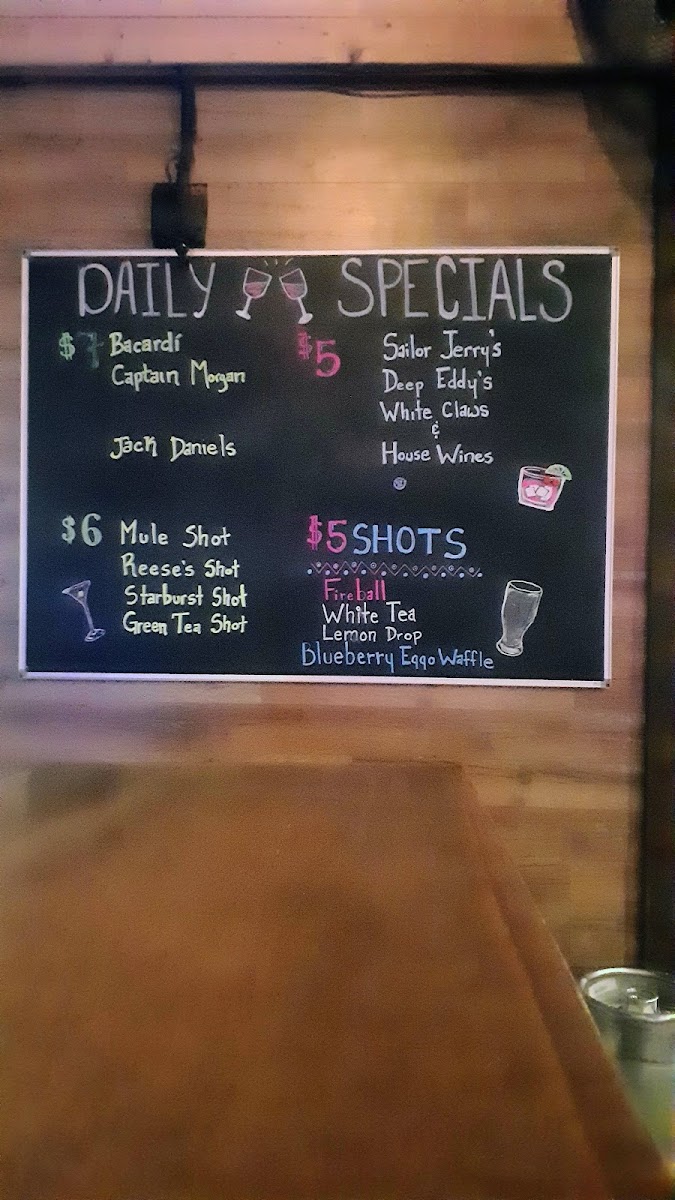 DAILY SPECIALS
$7 Bacardi
Captain Morgan
Jack Daniels
$5 Sailor Jerry's
Deep Eddy's
White Claws
&
House Wines
$6 Mule Shot
Reese's Shot
Starburst Shot
Green Tea Shot
$5 SHOTS
Fireball
White Tea
Lemon Drop
Blueberry Eggo Waffle